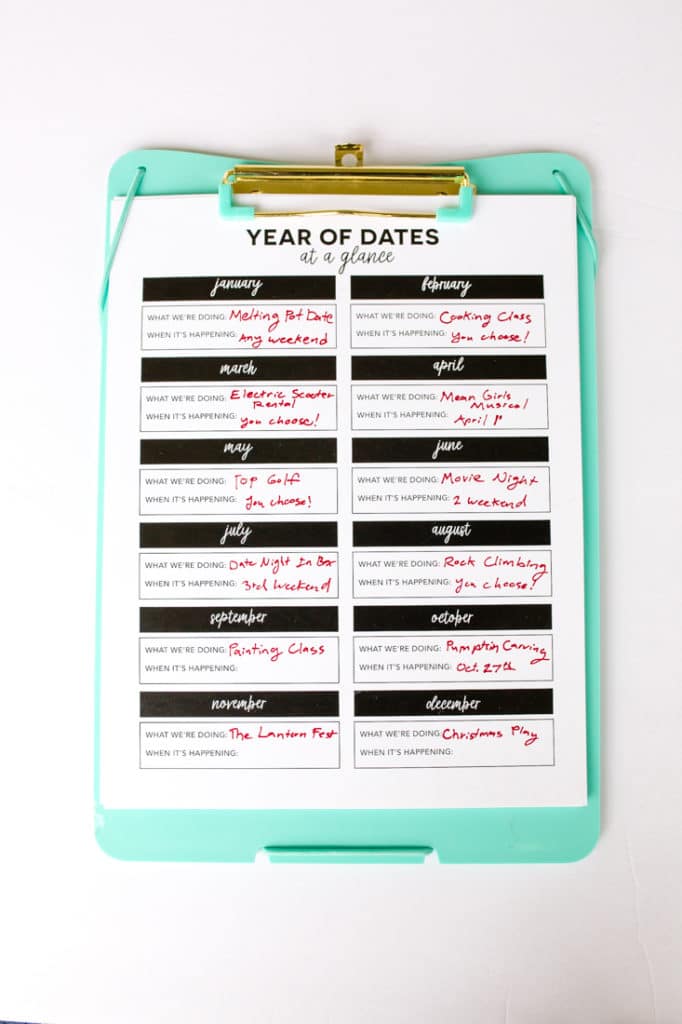 YEAR OF DATES
at a glance
january
WHAT WE'RE DOING: Melting Pot Date
WHEN IT'S HAPPENING: Any weekend
february
WHAT WE'RE DOING: Cooking Class
WHEN IT'S HAPPENING: You choose!
march
WHAT WE'RE DOING: Electric Scooter
Rental
WHEN IT'S HAPPENING: You choose!
april
WHAT WE'RE DOING: Mean Girls
Musical
WHEN IT'S HAPPENING: April
may
WHAT WE'RE DOING: Top Golf
WHEN IT'S HAPPENING: You choose!
june
WHAT WE'RE DOING: Movie Night
WHEN IT'S HAPPENING: 2 weekend
july
WHAT WE'RE DOING: Date Night In Box
WHEN IT'S HAPPENING: 3rd weekend
august
WHAT WE'RE DOING: Rock Climbing
WHEN IT'S HAPPENING: You choose!
september
WHAT WE'RE DOING: Painting Class
WHEN IT'S HAPPENING:
october
WHAT WE'RE DOING: Pumpkin Carving
WHEN IT'S HAPPENING: Oct. 27th
november
WHAT WE'RE DOING: The Lantern Fest
WHEN IT'S HAPPENING:
december
WHAT WE'RE DOING: Christmas Play
WHEN IT'S HAPPENING: